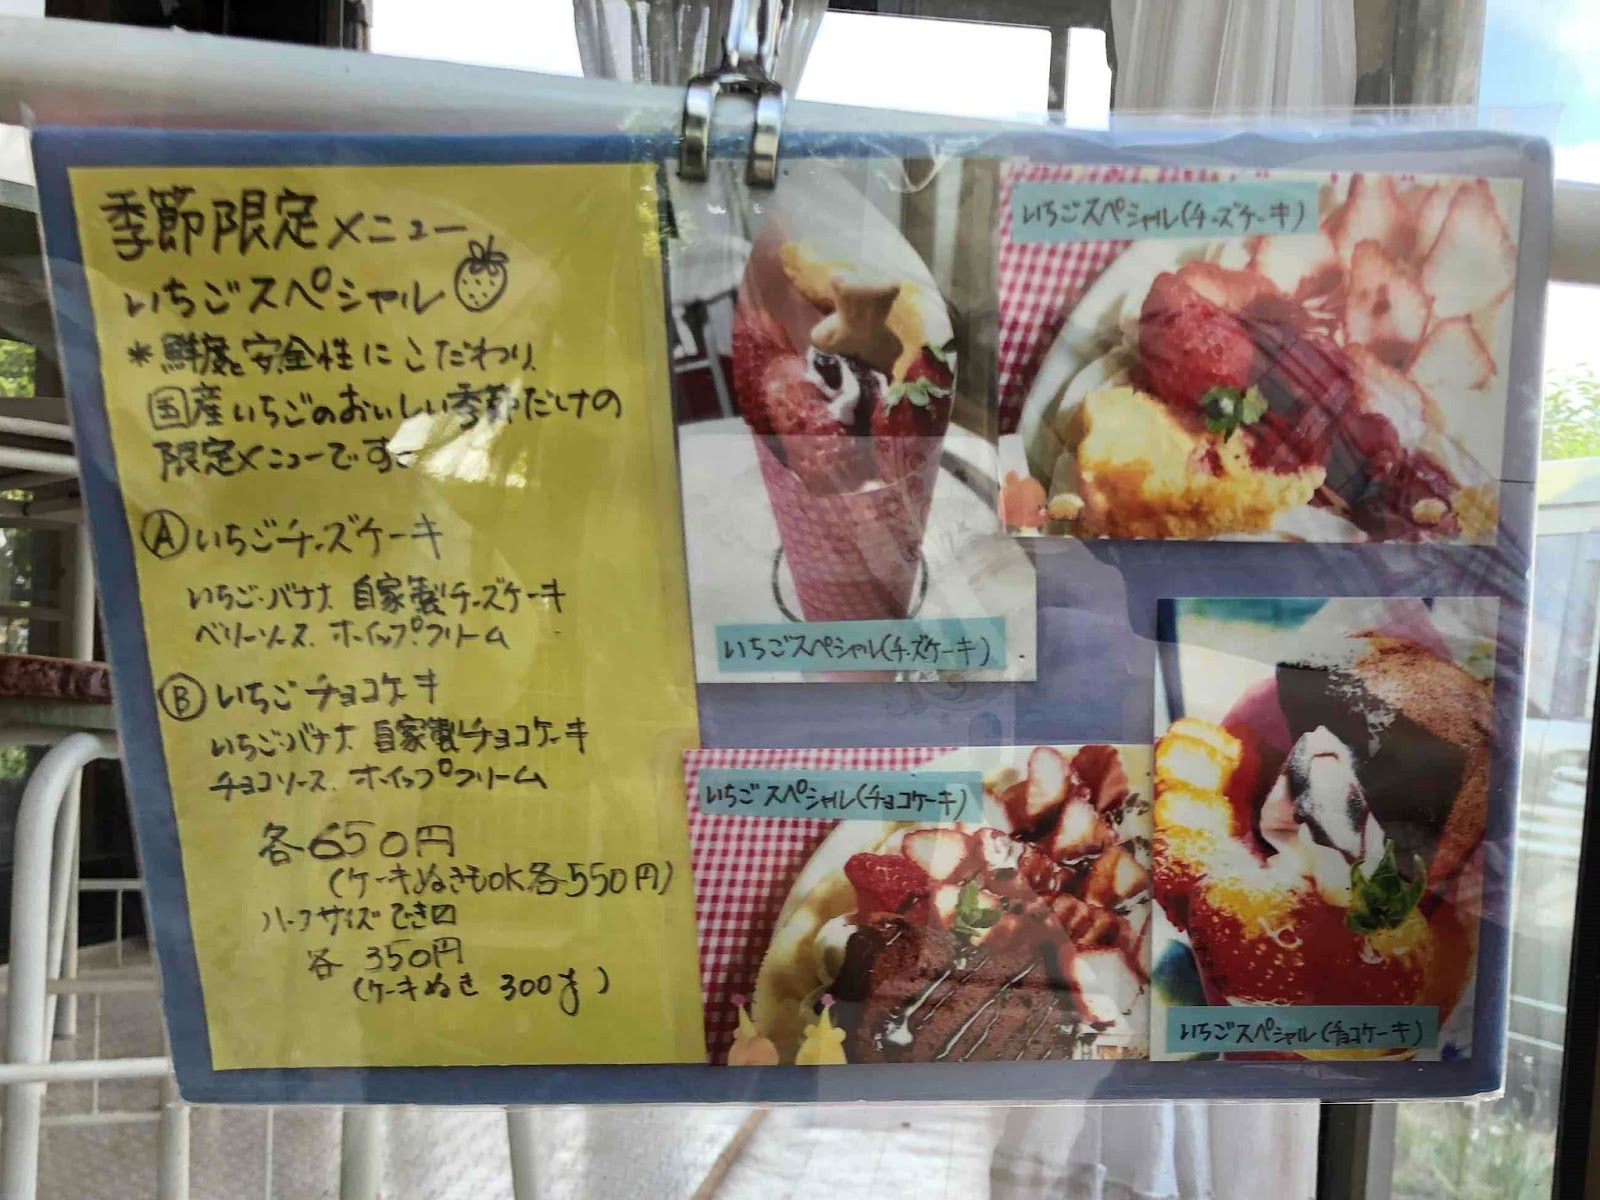 季節限定メニュー
いちごスペシャル
*鮮度と安全性にこだわり
国産いちごのおいしい季節だけの
限定メニューです。
Ⓐいちごチーズケーキ
いちご・バナナ 自家製チーズケーキ
ベリーソース. ホイップクリーム
Ⓑいちごチョコケーキ
いちご・バナナ 自家製チョコケーキ
チョコソース. ホイップクリーム
各650円
(ケーキぬきもOK各550円)
ハーフサイズできます
各 350円
(ケーキぬき 300円)
いちごスペシャル(チーズケーキ)
いちごスペシャル(チーズケーキ)
いちごスペシャル(チョコケーキ)
いちごスペシャル(チョコケーキ)